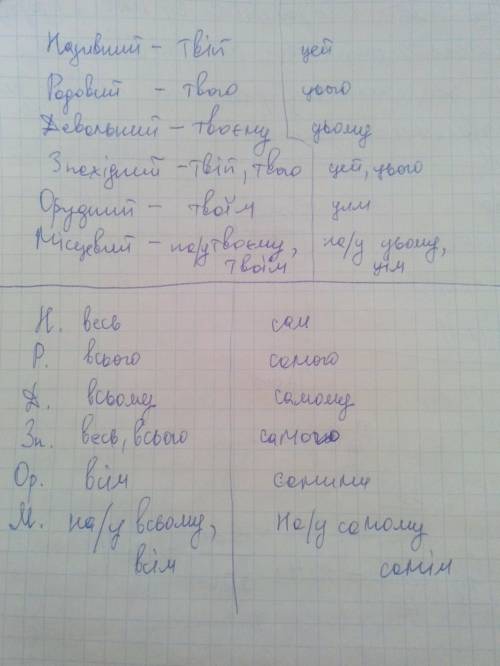 Називний - твій цей
Родовий - твого цього
Давальний - твоєму цьому
Знахідний - твій, твого цей, цього
Орудний - твоїм цим
Місцевий - на/у твоєму, на/у цьому,
твоїм цім
Н. весь сам
Р. всього самого
Д. всьому самому
Зн. весь, всього самого
Ор. всім самими
М. на/у всьому, На/у самому
всім самім